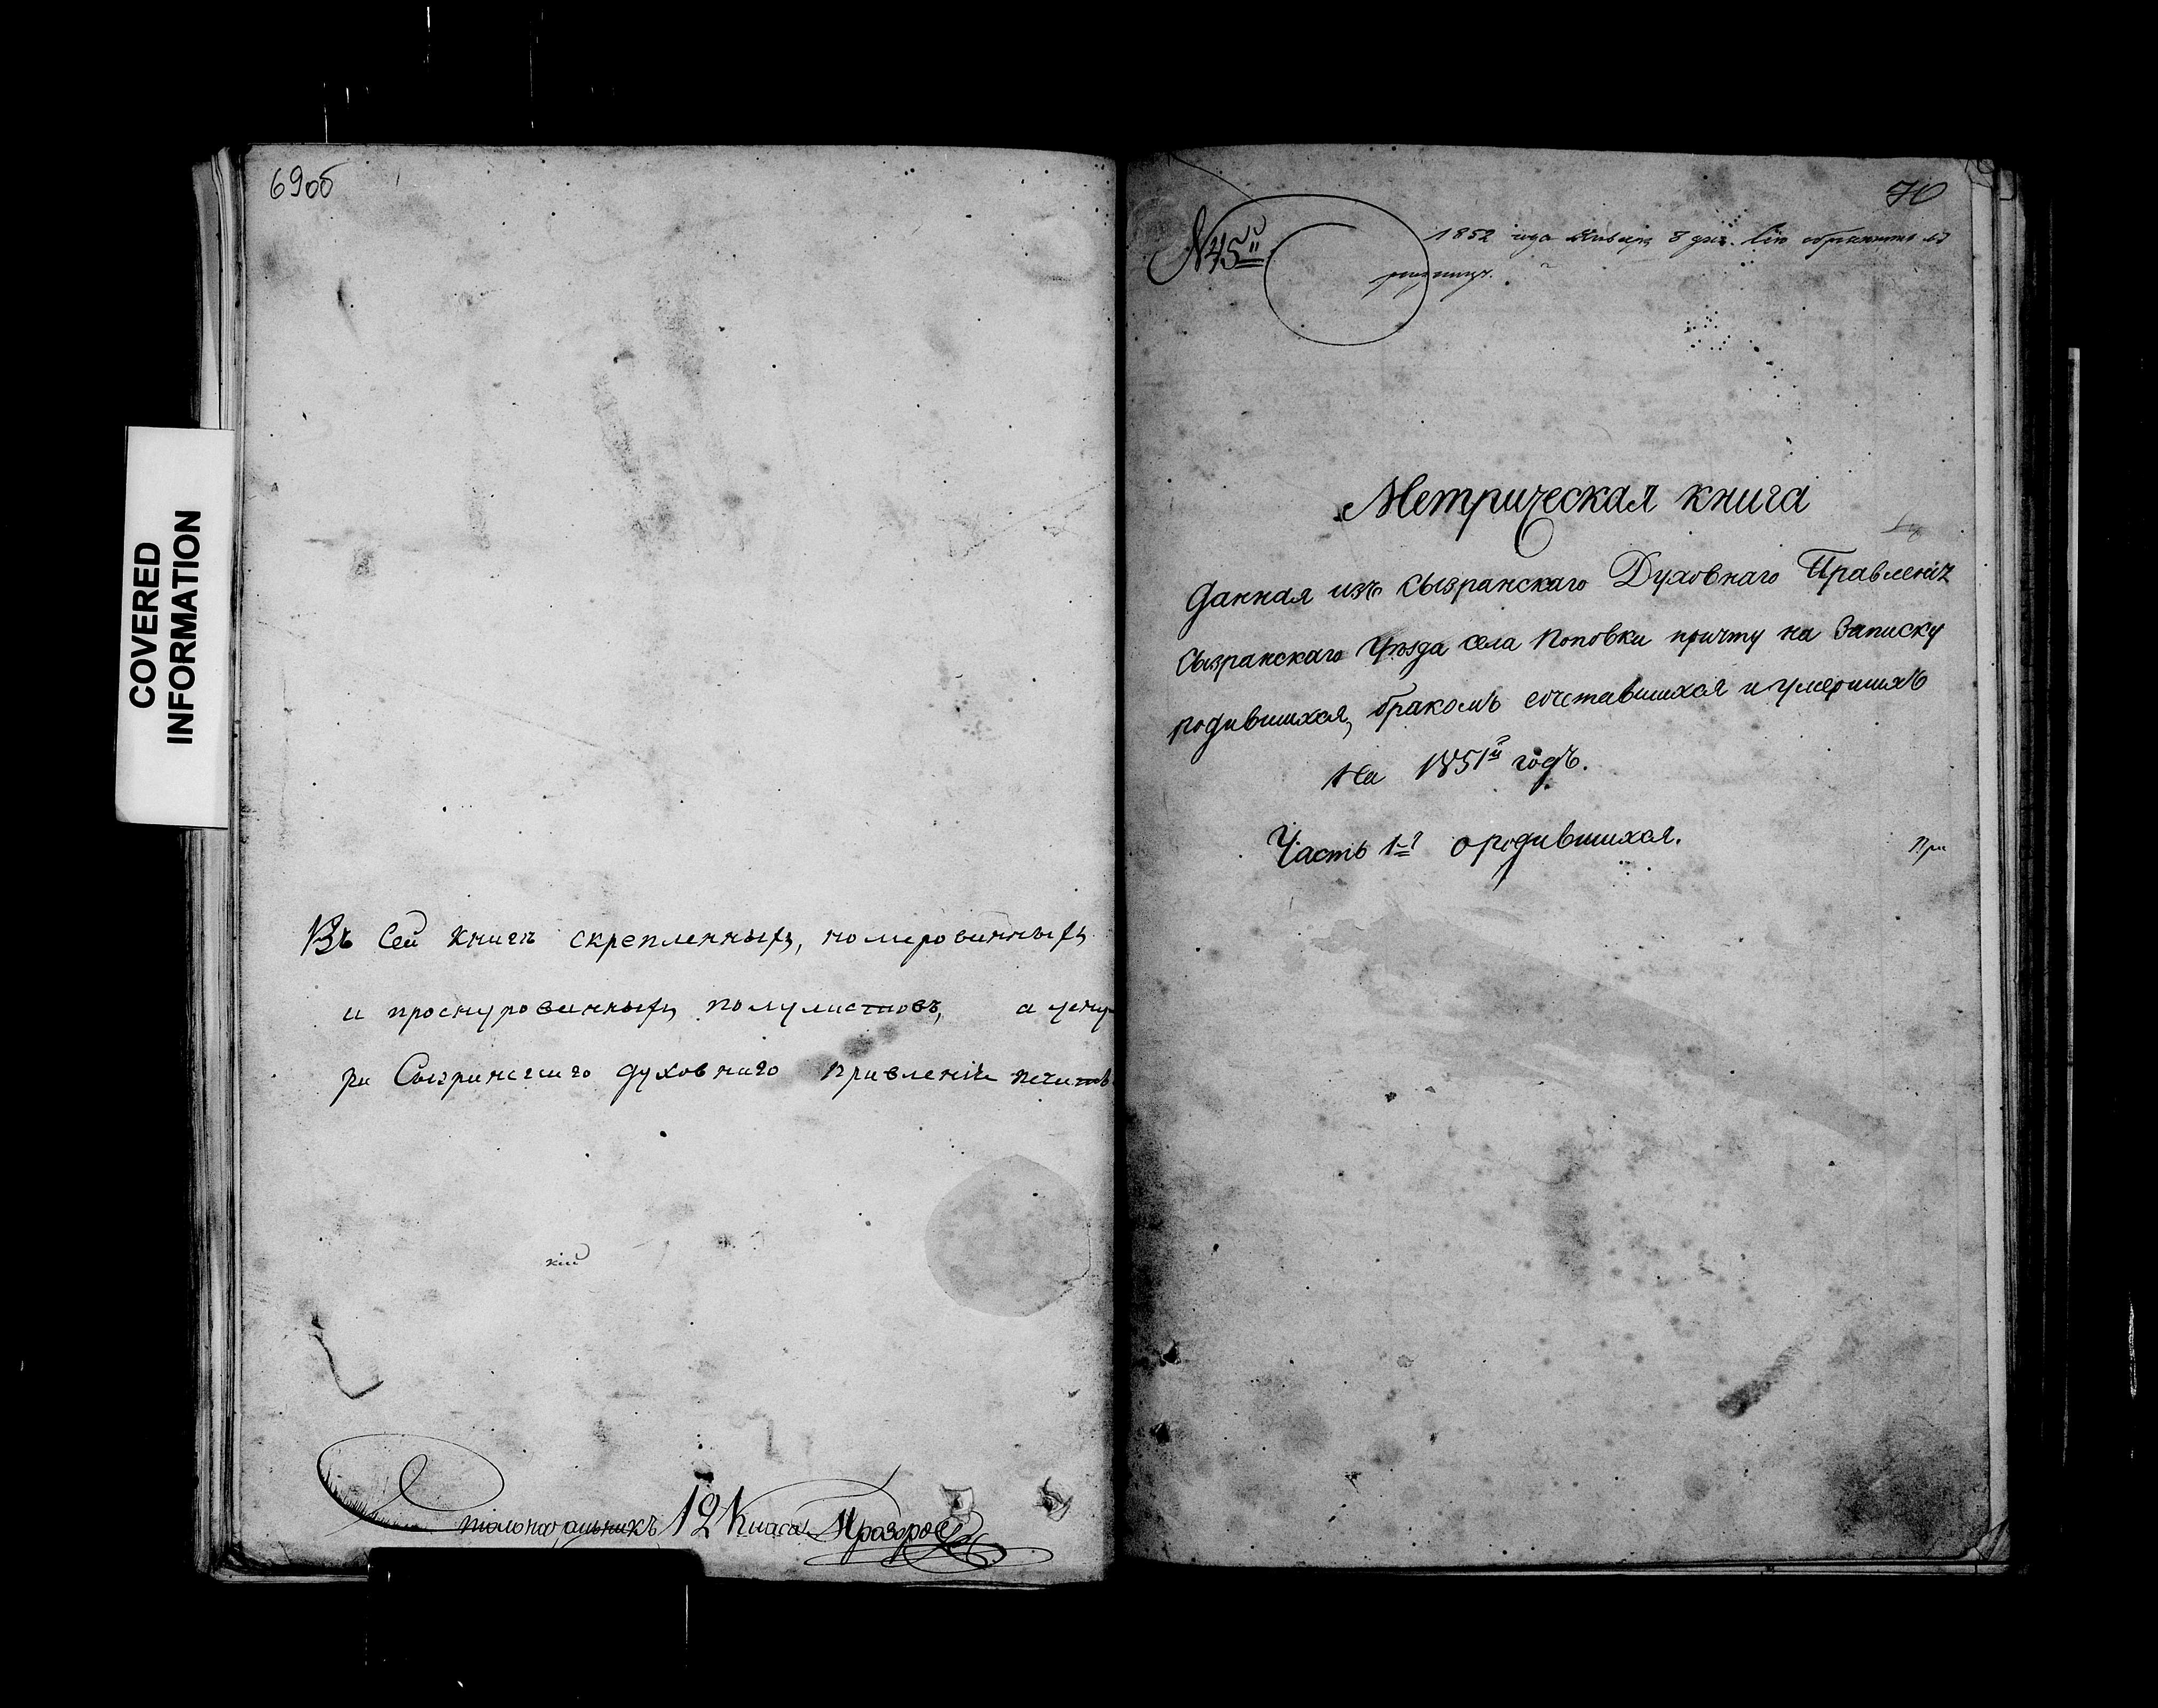 69об
COVERED
INFORMATION
Въ сей книгѣ скрепленныхъ, номерованныхъ
и прошнурованныхъ полулистовъ, а у шну-
ра Сызранскаго духовнаго правленія печать
кій
Столоначальникъ 12 класса
70
№ 45й
1852 года Января 8 дня. Сію
Метрическая книга
данная изъ Сызранскаго Духовнаго Правленія
Сызранскаго Уѣзда села Поповки причту на записку
родившихся, бракомъ сочетавшихся и умершихъ
На 1851й годъ.
Часть 1я о родившихся.
При